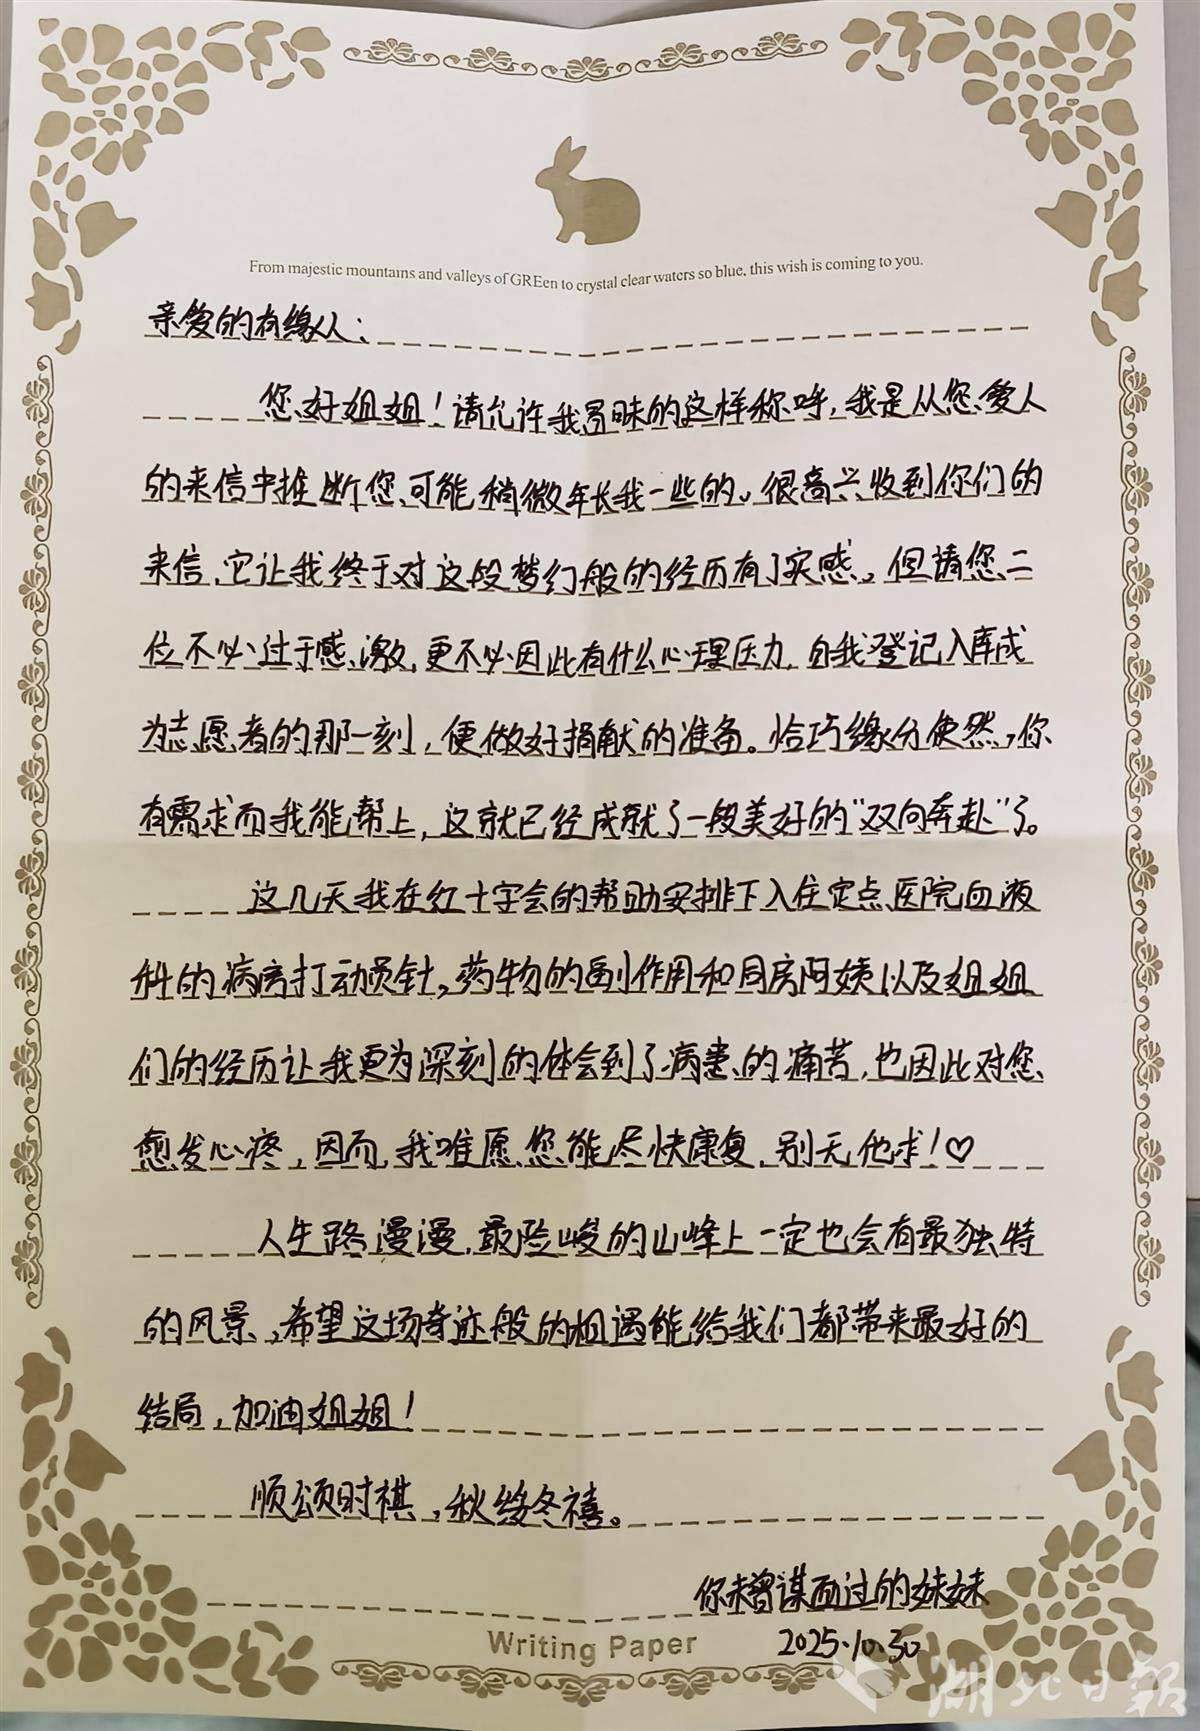 From majestic mountains and valleys of GREen to crystal clear waters so blue, this wish is coming to you.
亲爱的有缘人：
您好姐姐！请允许我冒昧的这样称呼，我是从您爱人
的来信中推断您可能稍微年长我一些的。很高兴收到你们的
来信，它让我终于对这段梦幻般的经历有了实感。但请您二
位不必过于感激，更不必因此有什么心理压力，自我登记入库成
为志愿者的那一刻，便做好捐献的准备。恰巧缘分使然，你
有需求而我能帮上，这就已经成就了一段美好的“双向奔赴”了。
这几天我在红十字会的帮助安排下入住定点医院血液
科的病房打动员针。药物的副作用和同房阿姨以及姐姐
们的经历让我更为深刻的体会到了病患的痛苦，也因此对您
愈发心疼，因而，我唯愿您能尽快康复，别无他求！♡
人生路漫漫，最险峻的山峰上一定也会有最独特
的风景，希望这场奇迹般的相遇能给我们都带来最好的
结局，加油姐姐！
顺颂时祺，秋绥冬禧。
你未曾谋面过的妹妹
2025.10.30
Writing Paper
湖北日報